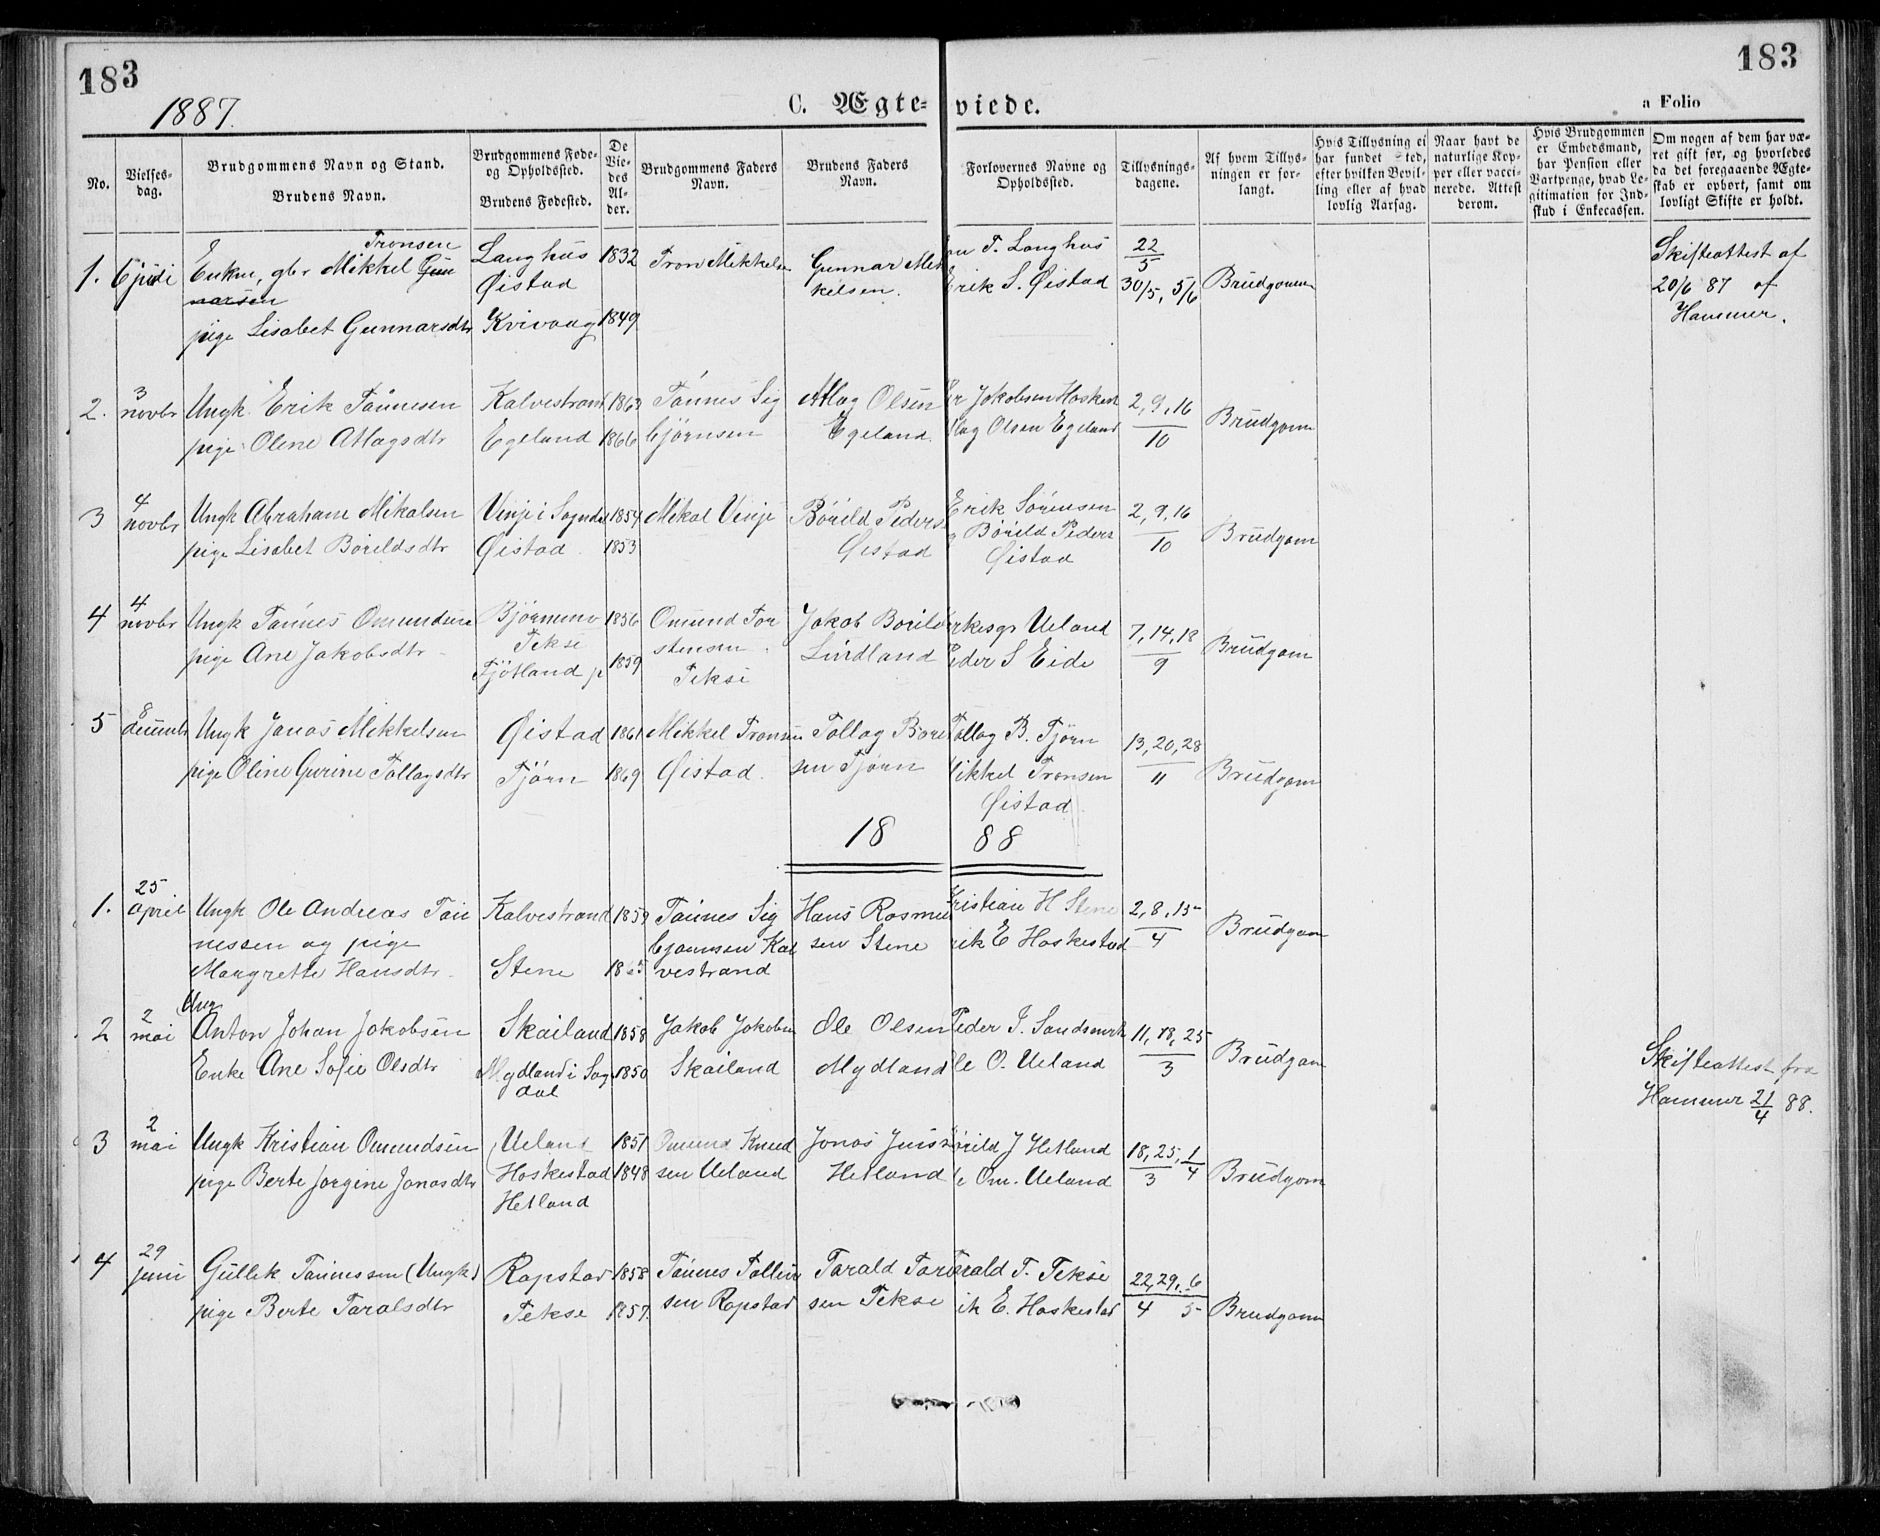 183
183
1887.
C. Ægte- viede.
a Folio
No.
Vielses-
dag.
Brudgommens Navn og Stand.
Brudens Navn.
Brudgommens Føde-
og Opholdssted.
Brudens Fødested.
De
Vie-
des
Al-
der.
Brudgommens Faders
Navn.
Brudens Faders
Navn.
Forlovernes Navne og
Opholdssted.
Tillysnings-
dagene.
Af hvem Tillys-
ningen er for-
langt.
Hvis Tillysning ei
har fundet Sted,
efter hvilken Bevil-
ling eller af hvad
lovlig Aarsag.
Naar havt de
naturlige Kop-
per eller vacci-
nerede. Attest
derom.
Hvis Brudgommen
er Embedsmand,
har Pension eller
Vartpenge, hvad Le-
gitimation for Ind-
skud i Enkecassen.
Om nogen af dem har væ-
ret gift før, og hvorledes
da det foregaaende Ægte-
skab er ophørt, samt om
lovligt Skifte er holdt.
1. 6 juli Enkm, gbr Mikkel Tronsen Gun
narsen
pige Lisabet Gunnarsdtr
Langhus
Øistad
Kvivaag
1832
1849
Tron Mikkelsen
Gunnar Mik
kelsen.
T. Langhus
Erik S. Øistad
22/5
30/5, 5/6
Brudgomm
Skifteattest af
20/6 87 af
Hammer.
2. 3 novbr Ungk. Erik Tønnesen
pige Olene Atlagsdtr
Kalvestrand
Egeland
1863
1866
Tønnes Sig
bjørnsen
Atlag Olsen
Egeland.
Jakobsen Hoskest
Olsen Egeland
2, 9, 16
10
Brudgomm
3 4 novbr Ungk Abraham Mikalsen
pige Lisabet Børildsdtr
Vinje i Sogndal
Øistad.
1854
1853
Mikal Vinje
Børild Peders
Øistad
Erik Sørensen
Børild Peders
Øistad
2, 9, 16
10
Brudgom
4 4 novbr Ungk Tønnes Omundsen
pige Ane Jakobsdtr
Tekse
Fjotland p
1856
1859
Omund Tor
stensen
Tekse
Jakob Borild
Lindland
Ueland
Peder S Eide
7, 14, 18
9
Brudgom
5 8 decembr Ungk Jonas Mikkelsen
pige Oline Gurine Tollagsdtr
Øistad
Tjørn
1861
1869
Mikkel Tronsen
Øistad.
Tollag Bore
sen Tjørn
Tollag B. Tjørn
Mikkel Tronsen
Øistad
13, 20, 28
11
Brudgom
18 88
1. 25 april Ungk Ole Andreas Tøn
nessen og pige
Margrette Hansdtr.
Kalvestrand
Stene
1859
1865
Tønnes Sig
bjørnsen Kal
vestrand
Hans Rasmus
sen Stene
Kristian H Stene
E Hoskestad
2, 8, 15
4
Brudgom
2 2 mai Ung
Anton Johan Jakobsen
Enke Ane Sofie Olsdtr
Skailand
Mydland i Sog
dal
1858
1850
Jakob Jakobsen
Skailand
Ole Olsen
Mydland
Peder J. Sandsmark
Ole O. Ueland
11, 18, 25
3
Brudgom
Skifteattest fra
Hammer 21/4 88.
3 2 mai Ungk Kristian Omundsen
pige Berte Jorgine Jonasdtr
Ueland
Hoskestad
Hetland
1851
1848
Omund Knud
sen Ueland
Jonas
Hetland
J Hetland
Om. Ueland
18, 25, 1
3 4
Brudgom
4 29 juni Gullik Tønnessen (Ungk)
pige Berte Taralsdtr
Rapstad
Tekse
1858
1857.
Tønnes Tollev
sen Rapstad
Tarald Tar
sen Tekse
Tarald T. Tekse
E. Hoskestad
22, 29, 6
4 5
Brudgomm